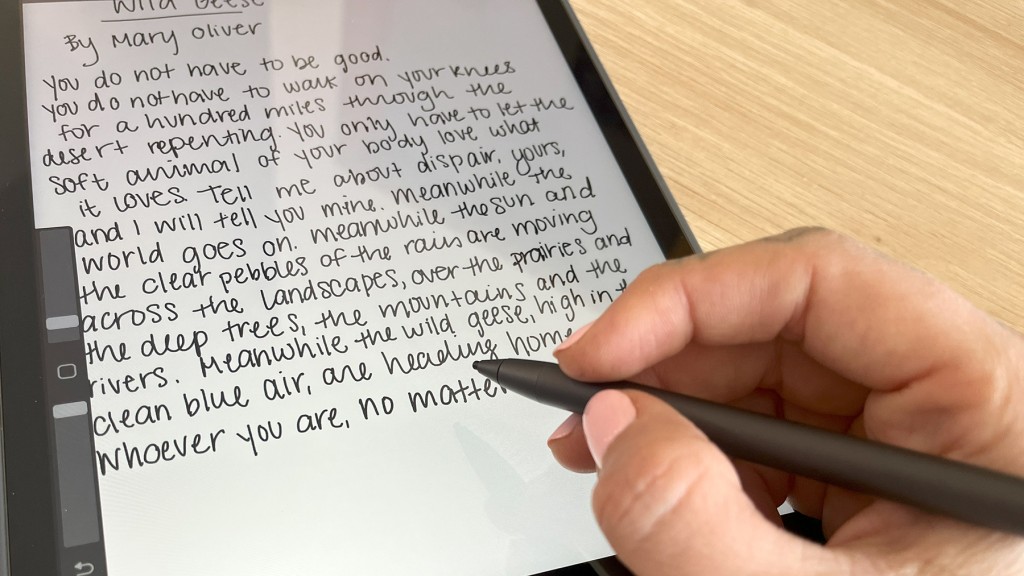 Wild Geese
By Mary Oliver
You do not have to be good.
You do not have to walk on your knees
for a hundred miles through the
desert repenting. You only have to let the
soft animal of your body love what
it loves. Tell me about dispair, yours,
and I will tell you mine. Meanwhile the
world goes on. meanwhile the sun and
the clear pebbles of the rain are moving
across the landscapes, over the prairies and
the deep trees, the mountains and the
rivers. Meanwhile the wild geese, high in
clean blue air, are heading home
Whoever you are, no matter